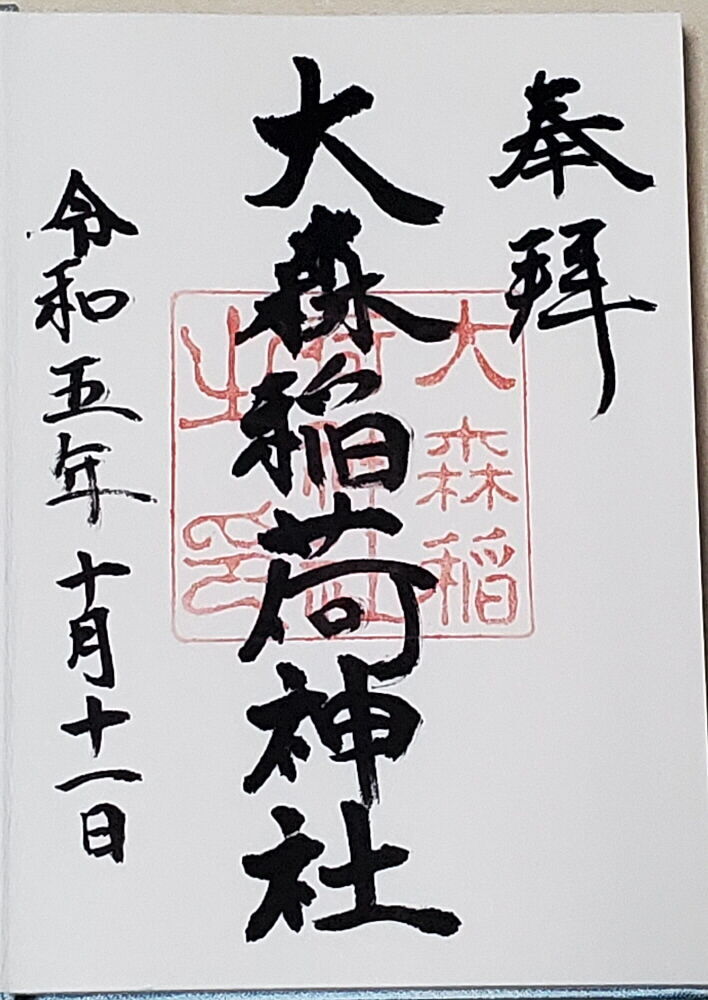 奉拝
大森稲荷神社
大森稲
荷神社
之印
令和五年十月十一日